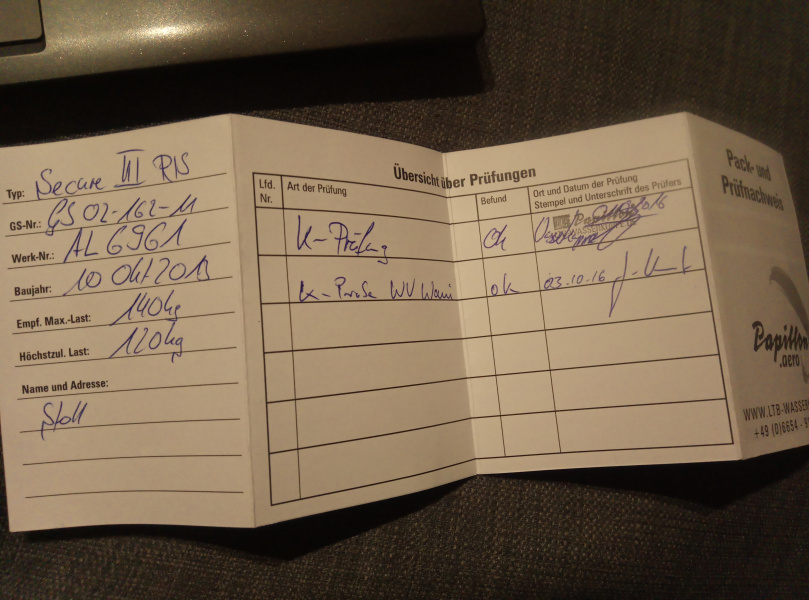 Typ: Secure III RIS
GS-Nr.: GS 02-162-11
Werk-Nr.: AL 6961
Baujahr: 10 Okt 2013
Empf. Max.-Last: 140kg
Höchstzul. Last: 120kg
Name und Adresse:
Stoll
Übersicht über Prüfungen
Lfd. Nr. Art der Prüfung Befund Ort und Datum der Prüfung
Stempel und Unterschrift des Prüfers
K-Prüfung Ok
K- ok 03.10.16
Pack- und
Prüfnachweis
Papillon
.aero
WWW.LTB-WASSER
+49 (0)6654 - 9